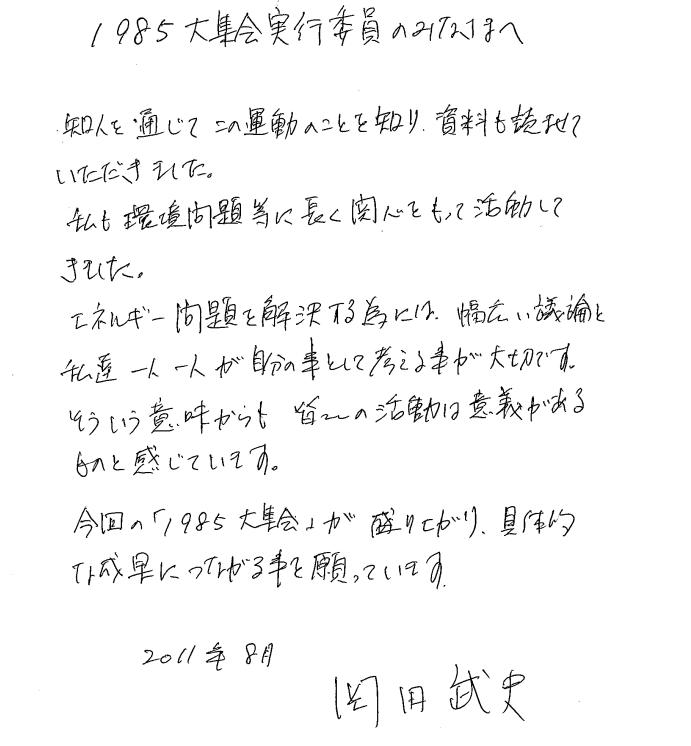 1985大集会実行委員のみなさまへ
知人を通じてこの運動のことを知り、資料も読ませて
いただきました。
私も環境問題等に長く関心をもって活動して
きました。
エネルギー問題を解決する為には、幅広い議論と
私達一人一人が自分の事として考える事が大切です。
そういう意味からも 皆さんの活動は意義がある
ものと感じています。
今回の「1985大集会」が盛り上がり、具体的
な成果につながる事を願っています。
2011年8月
岡田武史